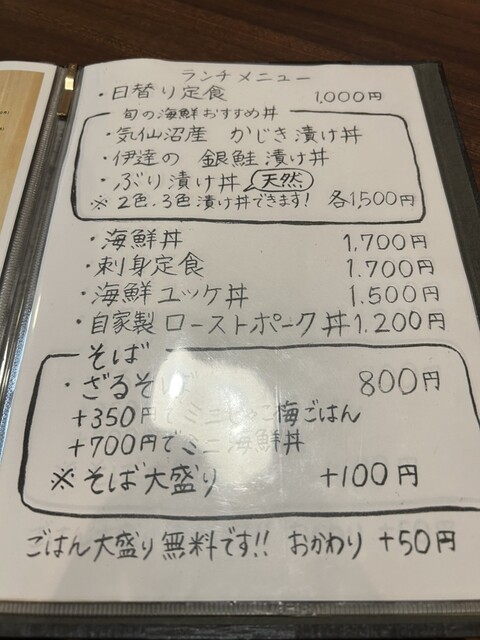 ランチメニュー
・日替り定食 1,000円
旬の海鮮おすすめ丼
・気仙沼産 かじき漬け丼
・伊達の 銀鮭漬け丼
・ぶり漬け丼 天然
※2色.3色漬け丼できます! 各1,500円
・海鮮丼 1,700円
・刺身定食 1.700円
・海鮮ユッケ丼 1.500円
・自家製ローストポーク丼 1.200円
そば
・ざるそば 800円
+350円でミニじゃこ梅ごはん
+700円でミニ海鮮丼
※そば大盛り +100円
ごはん大盛り無料です!! おかわり +50円